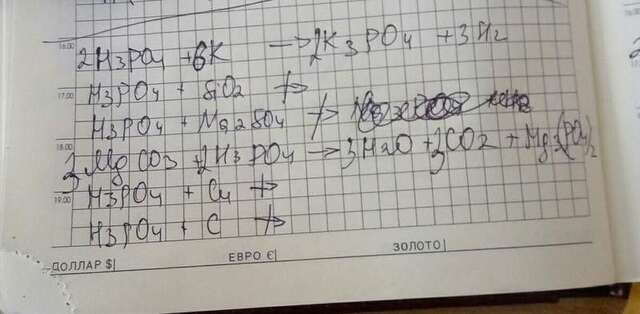 16.00
2H3PO4 + 6K → 2K3PO4 + 3H2
17.00
H3PO4 + SiO2 ↛
H3PO4 + Na2SO4 ↛
18.00
3MgCO3 + 2H3PO4 → 3H2O + 3CO2 + Mg3(PO4)2
19.00
H3PO4 + Cu ↛
H3PO4 + C ↛
ДОЛЛАР $| ЕВРО €| ЗОЛОТО|